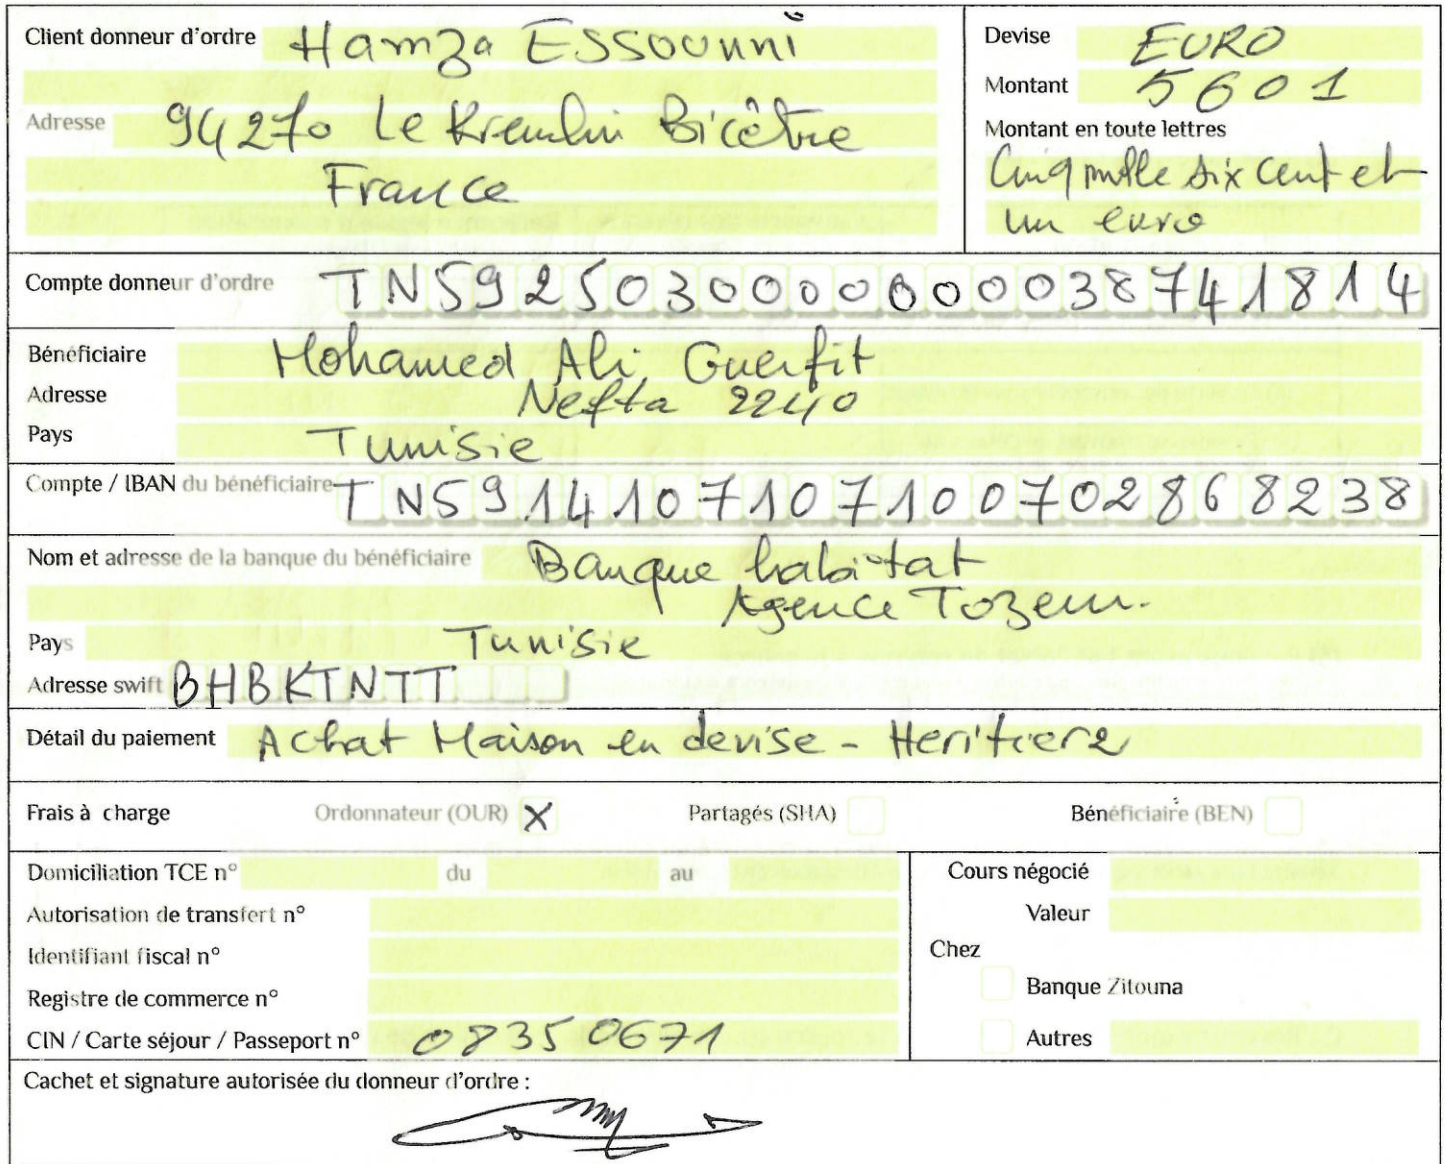 Client donneur d'ordre Hamza ESSOUNNI
Devise EURO
Montant 5601
Adresse 94270 Le Kremlin Bicêtre
France
Montant en toute lettres
Cinq mille six cent et
un euro
Compte donneur d'ordre TN5925030000000038741814
Bénéficiaire Mohamed Ali Guerfit
Adresse Nefta 2240
Pays Tunisie
Compte / IBAN du bénéficiaire TN5914107107100702868238
Nom et adresse de la banque du bénéficiaire Banque habitat
Agence Tozeur.
Pays Tunisie
Adresse swift BHBKTNTT
Détail du paiement Achat Maison en devise - Heritier2
Frais à charge Ordonnateur (OUR) X Partagés (SHA) Bénéficiaire (BEN)
Domiciliation TCE n° du au
Autorisation de transfert n°
Identifiant fiscal n°
Registre de commerce n°
CIN / Carte séjour / Passeport n° 08350671
Cours négocié
Valeur
Chez
Banque Zitouna
Autres
Cachet et signature autorisée du donneur d'ordre :